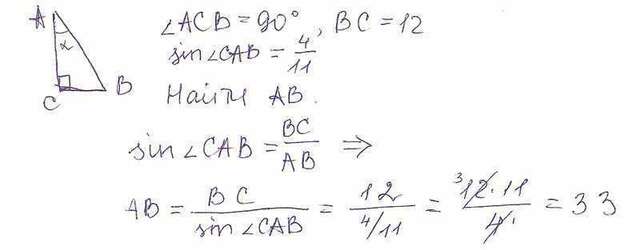 A
α
C
B
∠ACB = 90°, BC = 12
sin∠CAB = 4/11
Найти AB.
sin∠CAB = BC/AB ⇒
AB = BC/sin∠CAB = 12/(4/11) = ³12·11/4 = 33